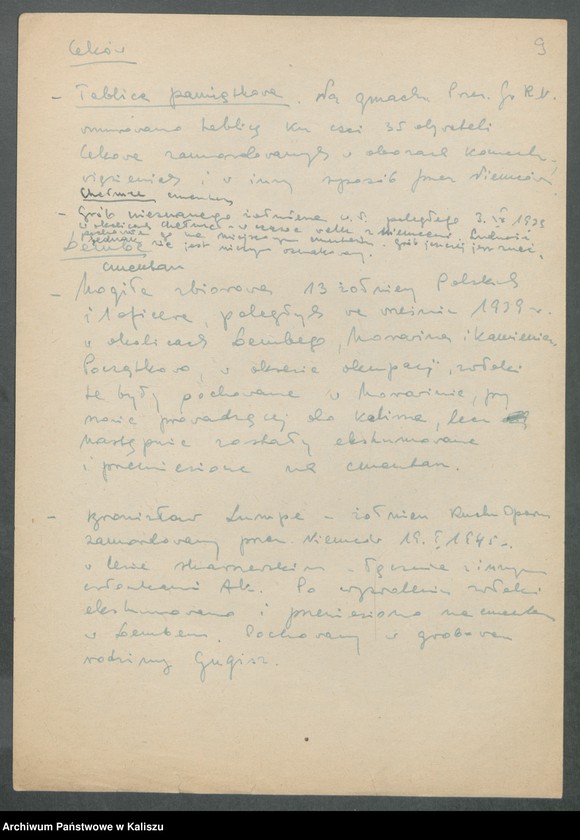 Ceków
9
- Tablica pamiątkowa. Na gmachu Prez. G. R. N.
wmurowano tablicę ku czci 35 obywateli
Cekowa zamordowanych w obozach koncentr.,
więzieniach i w inny sposób przez Niemców.
Chełmce cmentarz
- Grób nieznanego żołnierza W.P. poległego 3. IX 1939
w okolicach Chełmc - w czasie walk z Niemcami. Ludność
pochowała go na miejscowym cmentarzu. Grób
jednak nie jest niczym oznakowany.
Dembe
cmentarz
- Mogiła zbiorowa 13 żołnierzy Polskich
i 1 oficera, poległych we wrześniu 1939 r.
w okolicach Dembego, Morawina i Kamienia.
Początkowo, w okresie okupacji, zwłoki
te były pochowane w Morawinie, przy
szosie prowadzącej do Kalisza, lecz
następnie zostały ekshumowane
i przeniesione na cmentarz.
- Bronisław Lumpe - żołnierz Ruchu Oporu
zamordowany przez Niemców 19. I 1945 r.
w lesie skarszewskim - łącznie z innymi
członkami AK. Po wyzwoleniu zwłoki
ekshumowano i przeniesiono na cmentarz
w Dembem. Pochowany w grobowcu
rodziny Gugisz.
Archiwum Państwowe w Kaliszu